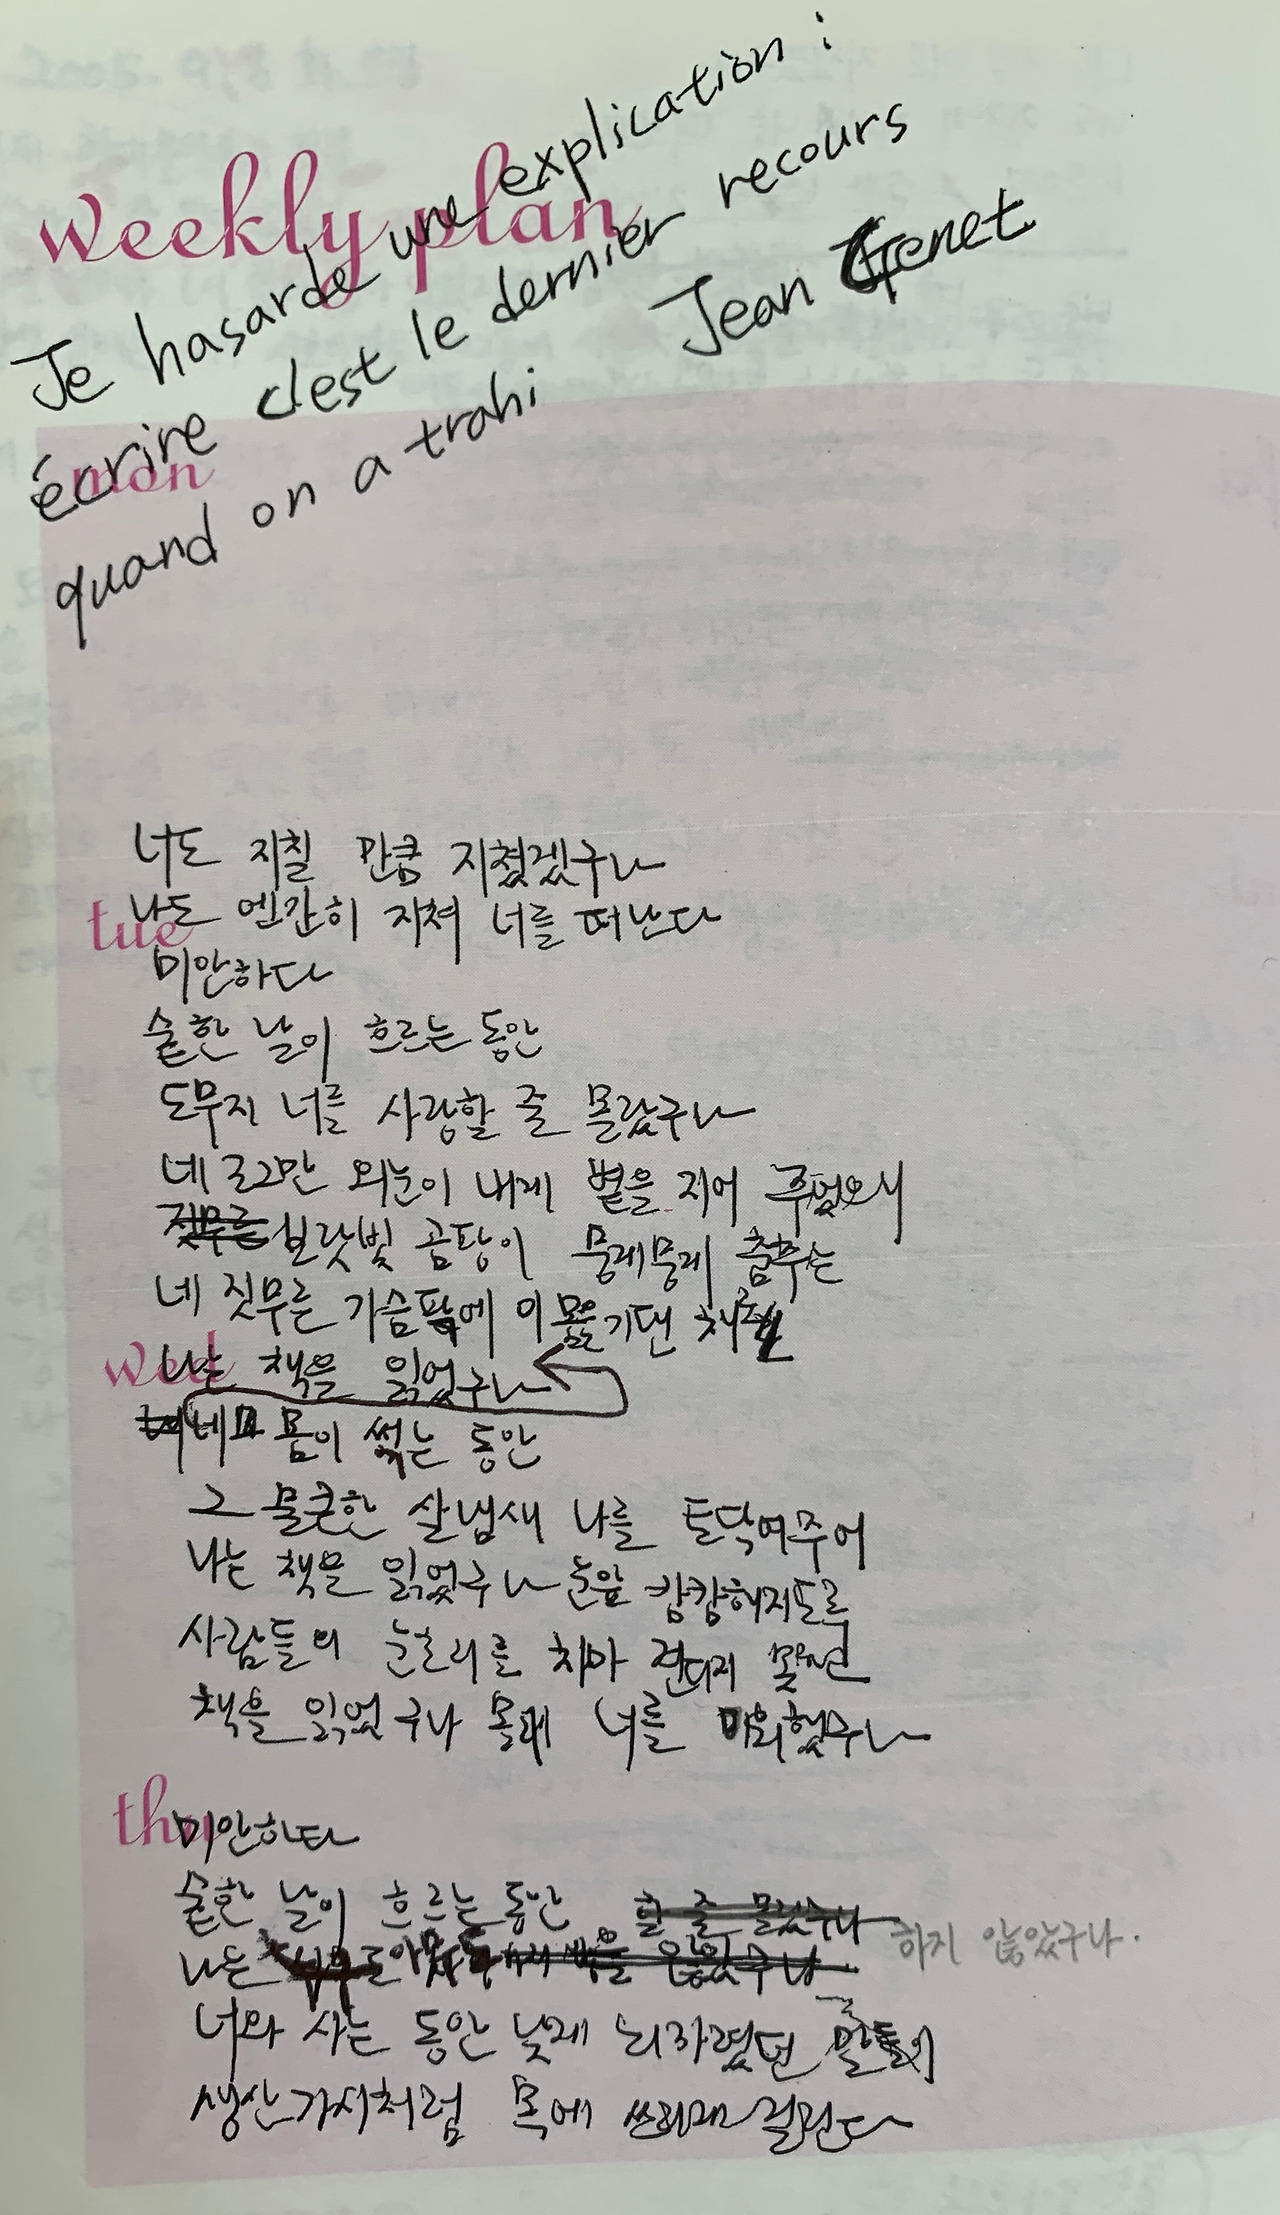 weekly plan
Je hasarde une explication :
écrire c'est le dernier recours
quand on a trahi
Jean Genet
mon
너도 지칠 만큼 지쳤겠구나
tue
나도 엔간히 지쳐 너를 떠난다
미안하다
숱한 날이 흐르는 동안
도무지 너를 사랑할 줄 몰랐구나
네 조그만 외눈이 내게 볕을 지어 주었으니
짓무른 보랏빛 곰팡이 뭉게뭉게 춤추는
네 짓무른 가슴팍에 이 몸을 기댄 채
wed
나는 책을 읽었구나
네 몸이 썩는 동안
그 물큰한 살냄새 나를 토닥여주어
나는 책을 읽었구나 눈앞 캄캄해지도록
사람들의 눈초리를 치마 견디지 못한
책을 읽었구나 몰래 너를 미워했구나
thu
미안하다
숱한 날이 흐르는 동안 할 줄 몰랐구나
하지 않았구나.
나는
너와 사는 동안 낮게 뇌까렸던 말들이
생선가시처럼 목에 쓰라래 걸린다